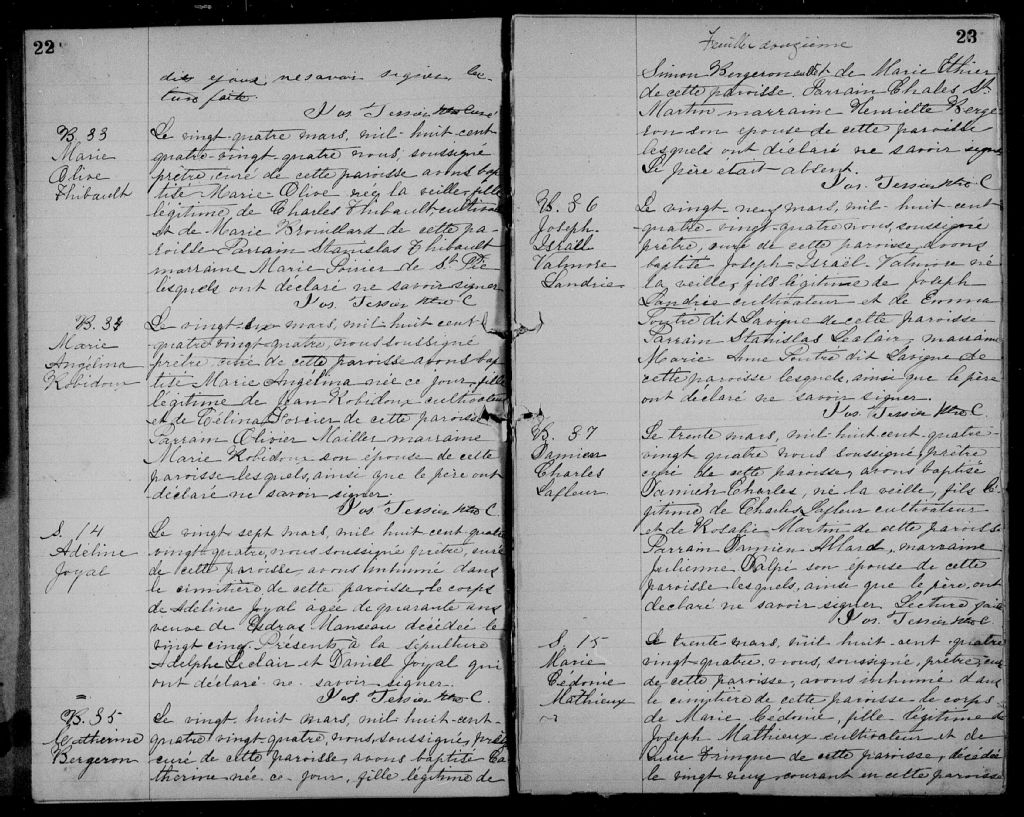 22
ture faite.
Jos. Tessier Ptre Curé
B. 33
Marie
Olive
Thibault
Le vingt-quatre mars, mil-huit-cent
quatre-vingt-quatre nous, soussigné
prêtre, curé de cette paroisse avons bap-
tisé Marie-Olive née la veille, fille
légitime de Charles Thibault, cultivateur
et de Marie Brouillard de cette pa-
roisse. Parrain Stanislas Thibault
marraine Marie Poirier de St. Pie
lesquels ont déclaré ne savoir signer
Jos. Tessier Ptre C
B. 34
Marie
Angélina
Robidoux
Le vingt-six mars, mil huit cent
quatre vingt-quatre, nous soussigné
prêtre, curé de cette paroisse avons bap
tisé Marie Angélina née ce jour, fille
légitime de Jean Robidoux cultivateur
et de Célina Forcier de cette paroisse
Parrain Olivier Mailler marraine
Marie Robidoux son épouse de cette
paroisse lesquels, ainsi que le père ont
déclaré ne savoir signer.
Jos. Tessier Ptre C
S. 14
Adéline
Joyal
Le vingt sept mars, mil huit cent quatre
vingt-quatre, nous soussigné prêtre, curé
de cette paroisse, avons inhumé dans
le cimitière de cette paroisse, le corps
de Adeline Joyal agée de quarante ans
veuve de Esdras Manseau décédée le
vingt cinq. Présents à la sépulture
Adelphe Leclair et Daniel Joyal qui
ont déclaré ne savoir signer.
Jos. Tessier Ptre C.
B. 35
Catherine
Bergeron
Le vingt-huit mars, mil huit-cent-
quatre vingt-quatre, nous, soussigné, prêtre
curé de cette paroisse, avons baptisé Ca
therine née ce jour, fille légitime de
23
Feuillet douzième
Simon Bergeron et de Marie Ethier
de cette paroisse. Parrain Chales St.
Martin marraine Henriette Berge-
ron son épouse de cette paroisse
lesquels ont déclaré ne savoir signer
Le père était absent.
Jos. Tessier Ptre C
B. 36
Joseph
Israël
Valmore
Landrie
Le vingt-neuf mars, mil-huit-cent
-quatre-vingt-quatre nous, soussigné
prêtre, curé de cette paroisse, avons
baptisé Joseph-Israël-Valmore né
la veille, fils légitime de Joseph
Landrie cultivateur et de Emma
Poutré dit Lavigne de cette paroisse
Parrain Stanislas Leclair, marraine
Marie Anne Poutré dit Lavigne de
cette paroisse lesquels, ainsi que le père
ont déclaré ne savoir signer.
Jos. Tessier Ptre C.
B. 37
Damien
Charles
Lafleur
Le trente mars, mil-huit cent-quatre-
vingt quatre nous soussigné, prêtre
curé de cette paroisse, avons baptisé
Damien Charles, né la veille, fils lé
gitime de Charles Lafleur cultivateur
et de Rosalie Martin de cette paroisse
Parrain Damien Allard, marraine
Julienne Salpé son épouse de cette
paroisse lesquels, ainsi que le père, ont
déclaré ne savoir signer Lecture faite
Jos. Tessier Ptre C
S. 15
Marie
Cédonie
Mathieux
Le trente mars, mil huit cent quatre
vingt-quatre, nous, soussigné, prêtre, curé
de cette paroisse, avons inhumé dans
le cimitière de cette paroisse le corps
de Marie Cédonie, fille légitime de
Joseph Mathieux cultivateur et de
Lucie Fringue de cette paroisse, décédée
le vingt neuf courant en cette paroisse